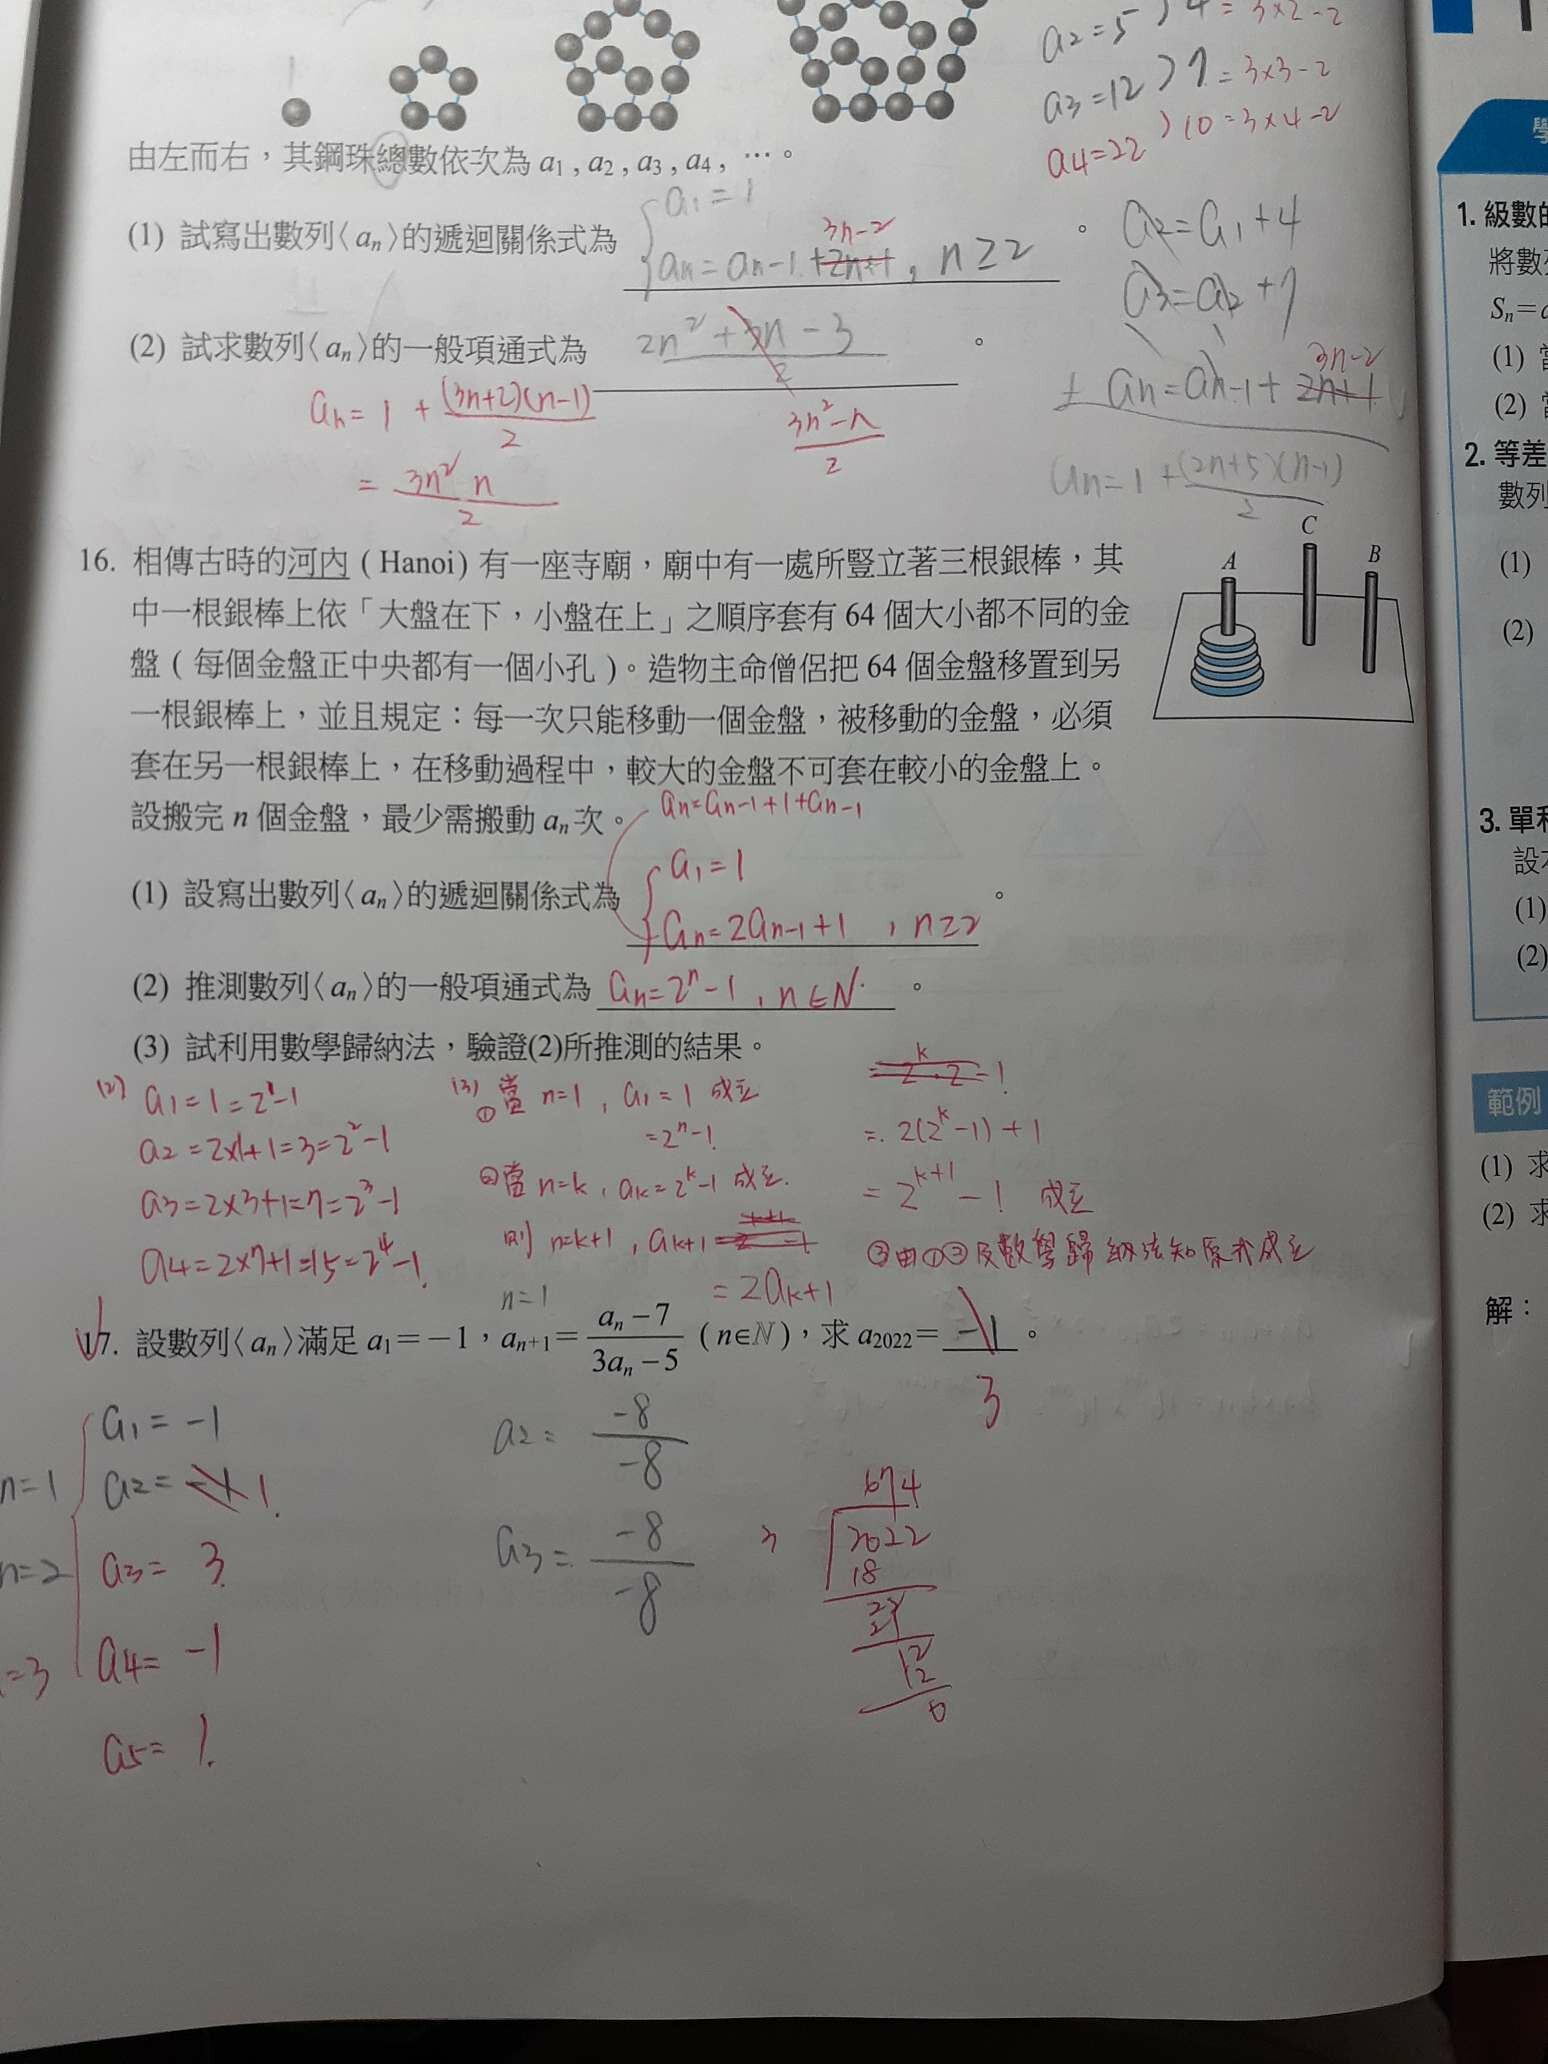 a2=5 〉4=3×2-2
a3=12 〉7=3×3-2
a4=22 〉10=3×4-2
由左而右，其鋼珠總數依次為 a1 , a2 , a3 , a4 , …。
(1) 試寫出數列〈an〉的遞迴關係式為
a1=1
3n-2
an=an-1+2n+1, n≥2 。
a2=a1+4
a3=a2+7
3n-2
+ an=an-1+2n+1
an=1+(2n+5)(n-1)/2
(2) 試求數列〈an〉的一般項通式為 2n²+3n-3/2 。
an=1+(3n+2)(n-1)/2
3n²-n/2
=3n² n/2
16. 相傳古時的河內 ( Hanoi ) 有一座寺廟，廟中有一處所豎立著三根銀棒，其
中一根銀棒上依「大盤在下，小盤在上」之順序套有 64 個大小都不同的金
盤 ( 每個金盤正中央都有一個小孔 )。造物主命僧侶把 64 個金盤移置到另
一根銀棒上，並且規定：每一次只能移動一個金盤，被移動的金盤，必須
套在另一根銀棒上，在移動過程中，較大的金盤不可套在較小的金盤上。
設搬完 n 個金盤，最少需搬動 an 次。
A
C
B
an=an-1+1+an-1
(1) 設寫出數列〈an〉的遞迴關係式為
a1=1
an=2an-1+1 , n≥2 。
(2) 推測數列〈an〉的一般項通式為 an=2ⁿ-1 , n∈N 。
(3) 試利用數學歸納法，驗證(2)所推測的結果。
(2) a1=1=2¹-1
a2=2×1+1=3=2²-1
a3=2×3+1=7=2³-1
a4=2×7+1=15=2⁴-1
(3) ①當 n=1 , a1=1 成立
=2ⁿ-1
②當 n=k , ak=2ᵏ-1 成立.
則 n=k+1 , ak+1
=2ak+1
=2ᵏ·2-1
=2(2ᵏ-1)+1
=2ᵏ⁺¹-1 成立
③由①②及數學歸納法知原式成立
n=1
17. 設數列〈an〉滿足 a1=-1，an+1=an-7/3an-5 ( n∈N )，求 a2022=-1 。
3
a1=-1
n=1 a2=-1 1
n=2 a3=3
=3 a4=-1
a5=1
a2=-8/-8
a3=-8/-8
674
3 2022
18
22
21
12
12
0
學
1. 級數的
將數列
Sn=a
(1) 當
(2) 當
2. 等差
數列
(1)
(2)
3. 單利
設本
(1)
(2)
範例
(1) 求
(2) 求
解：